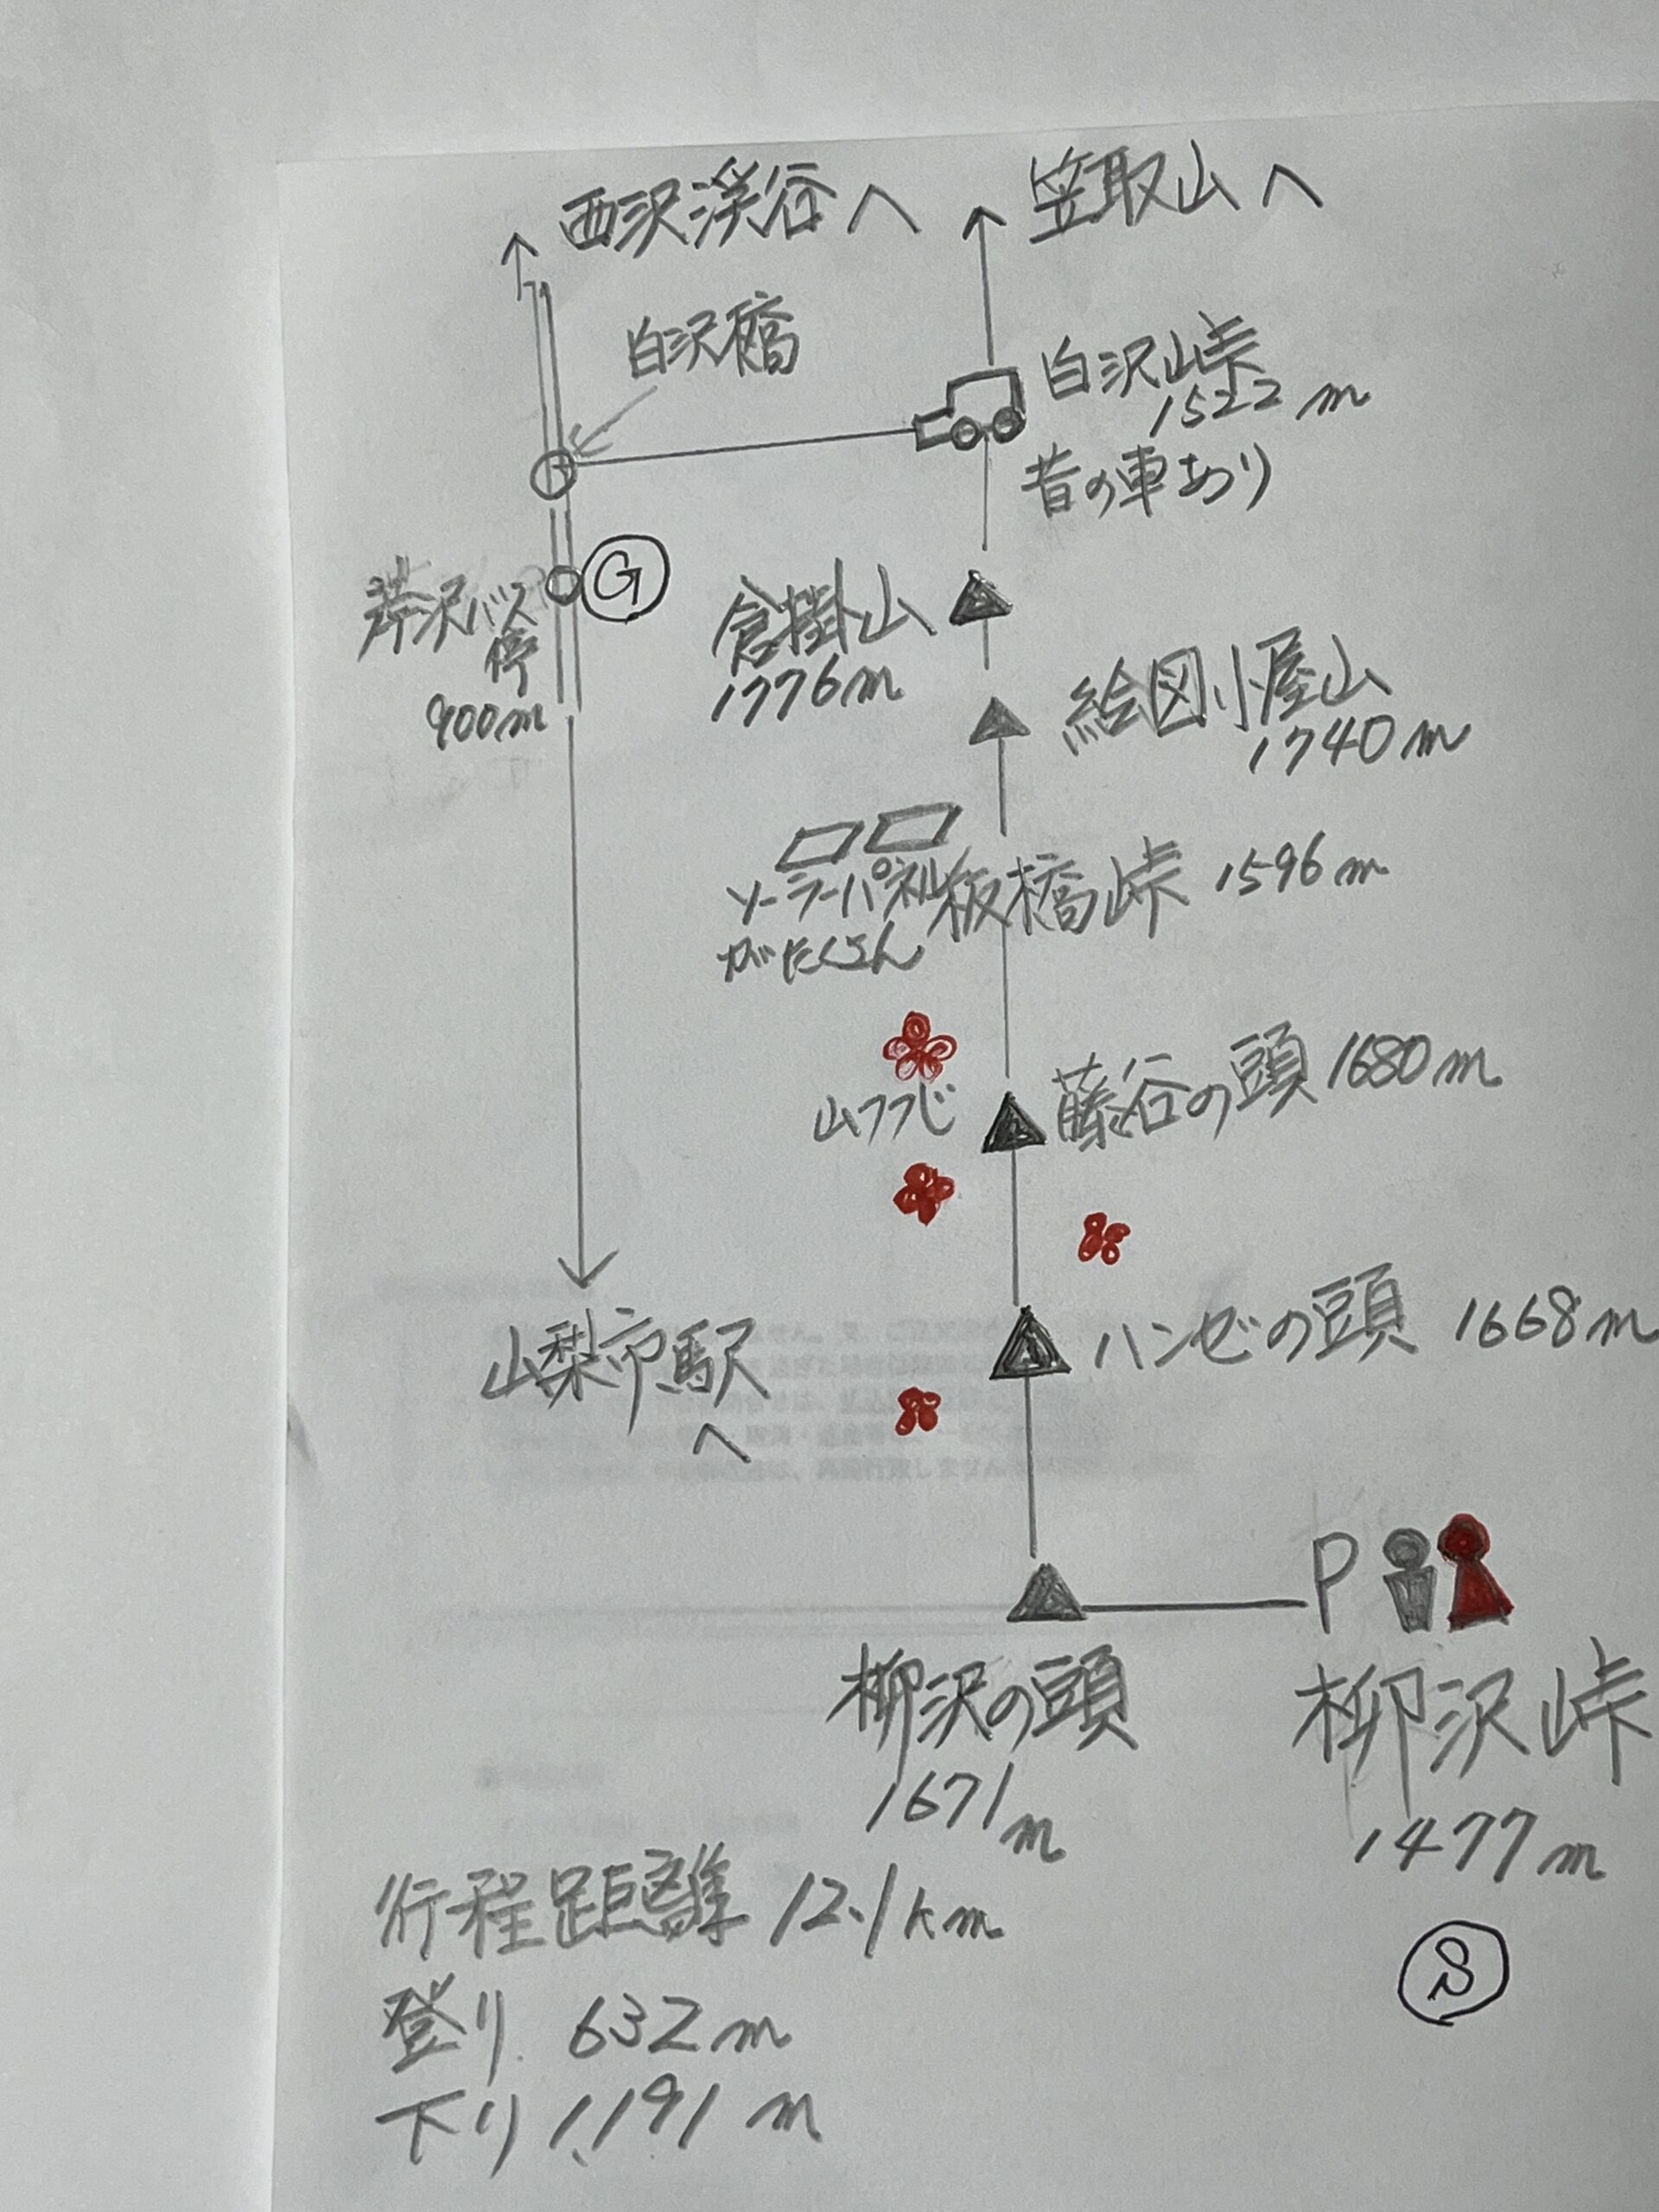 西沢渓谷へ
笠取山へ
白沢橋
白沢峠
1522m
昔の車あり
芹沢バス
停
900m
G
倉掛山
1776m
絵図小屋山
1740m
ソーラーパネル
がたくさん
板橋峠 1596m
山ツツじ
藤谷の頭 1680m
ハンゼの頭 1668m
山梨市駅
へ
P
柳沢の頭
1671m
柳沢峠
1477m
S
行程距離 12.1km
登り 632m
下り 1,191m